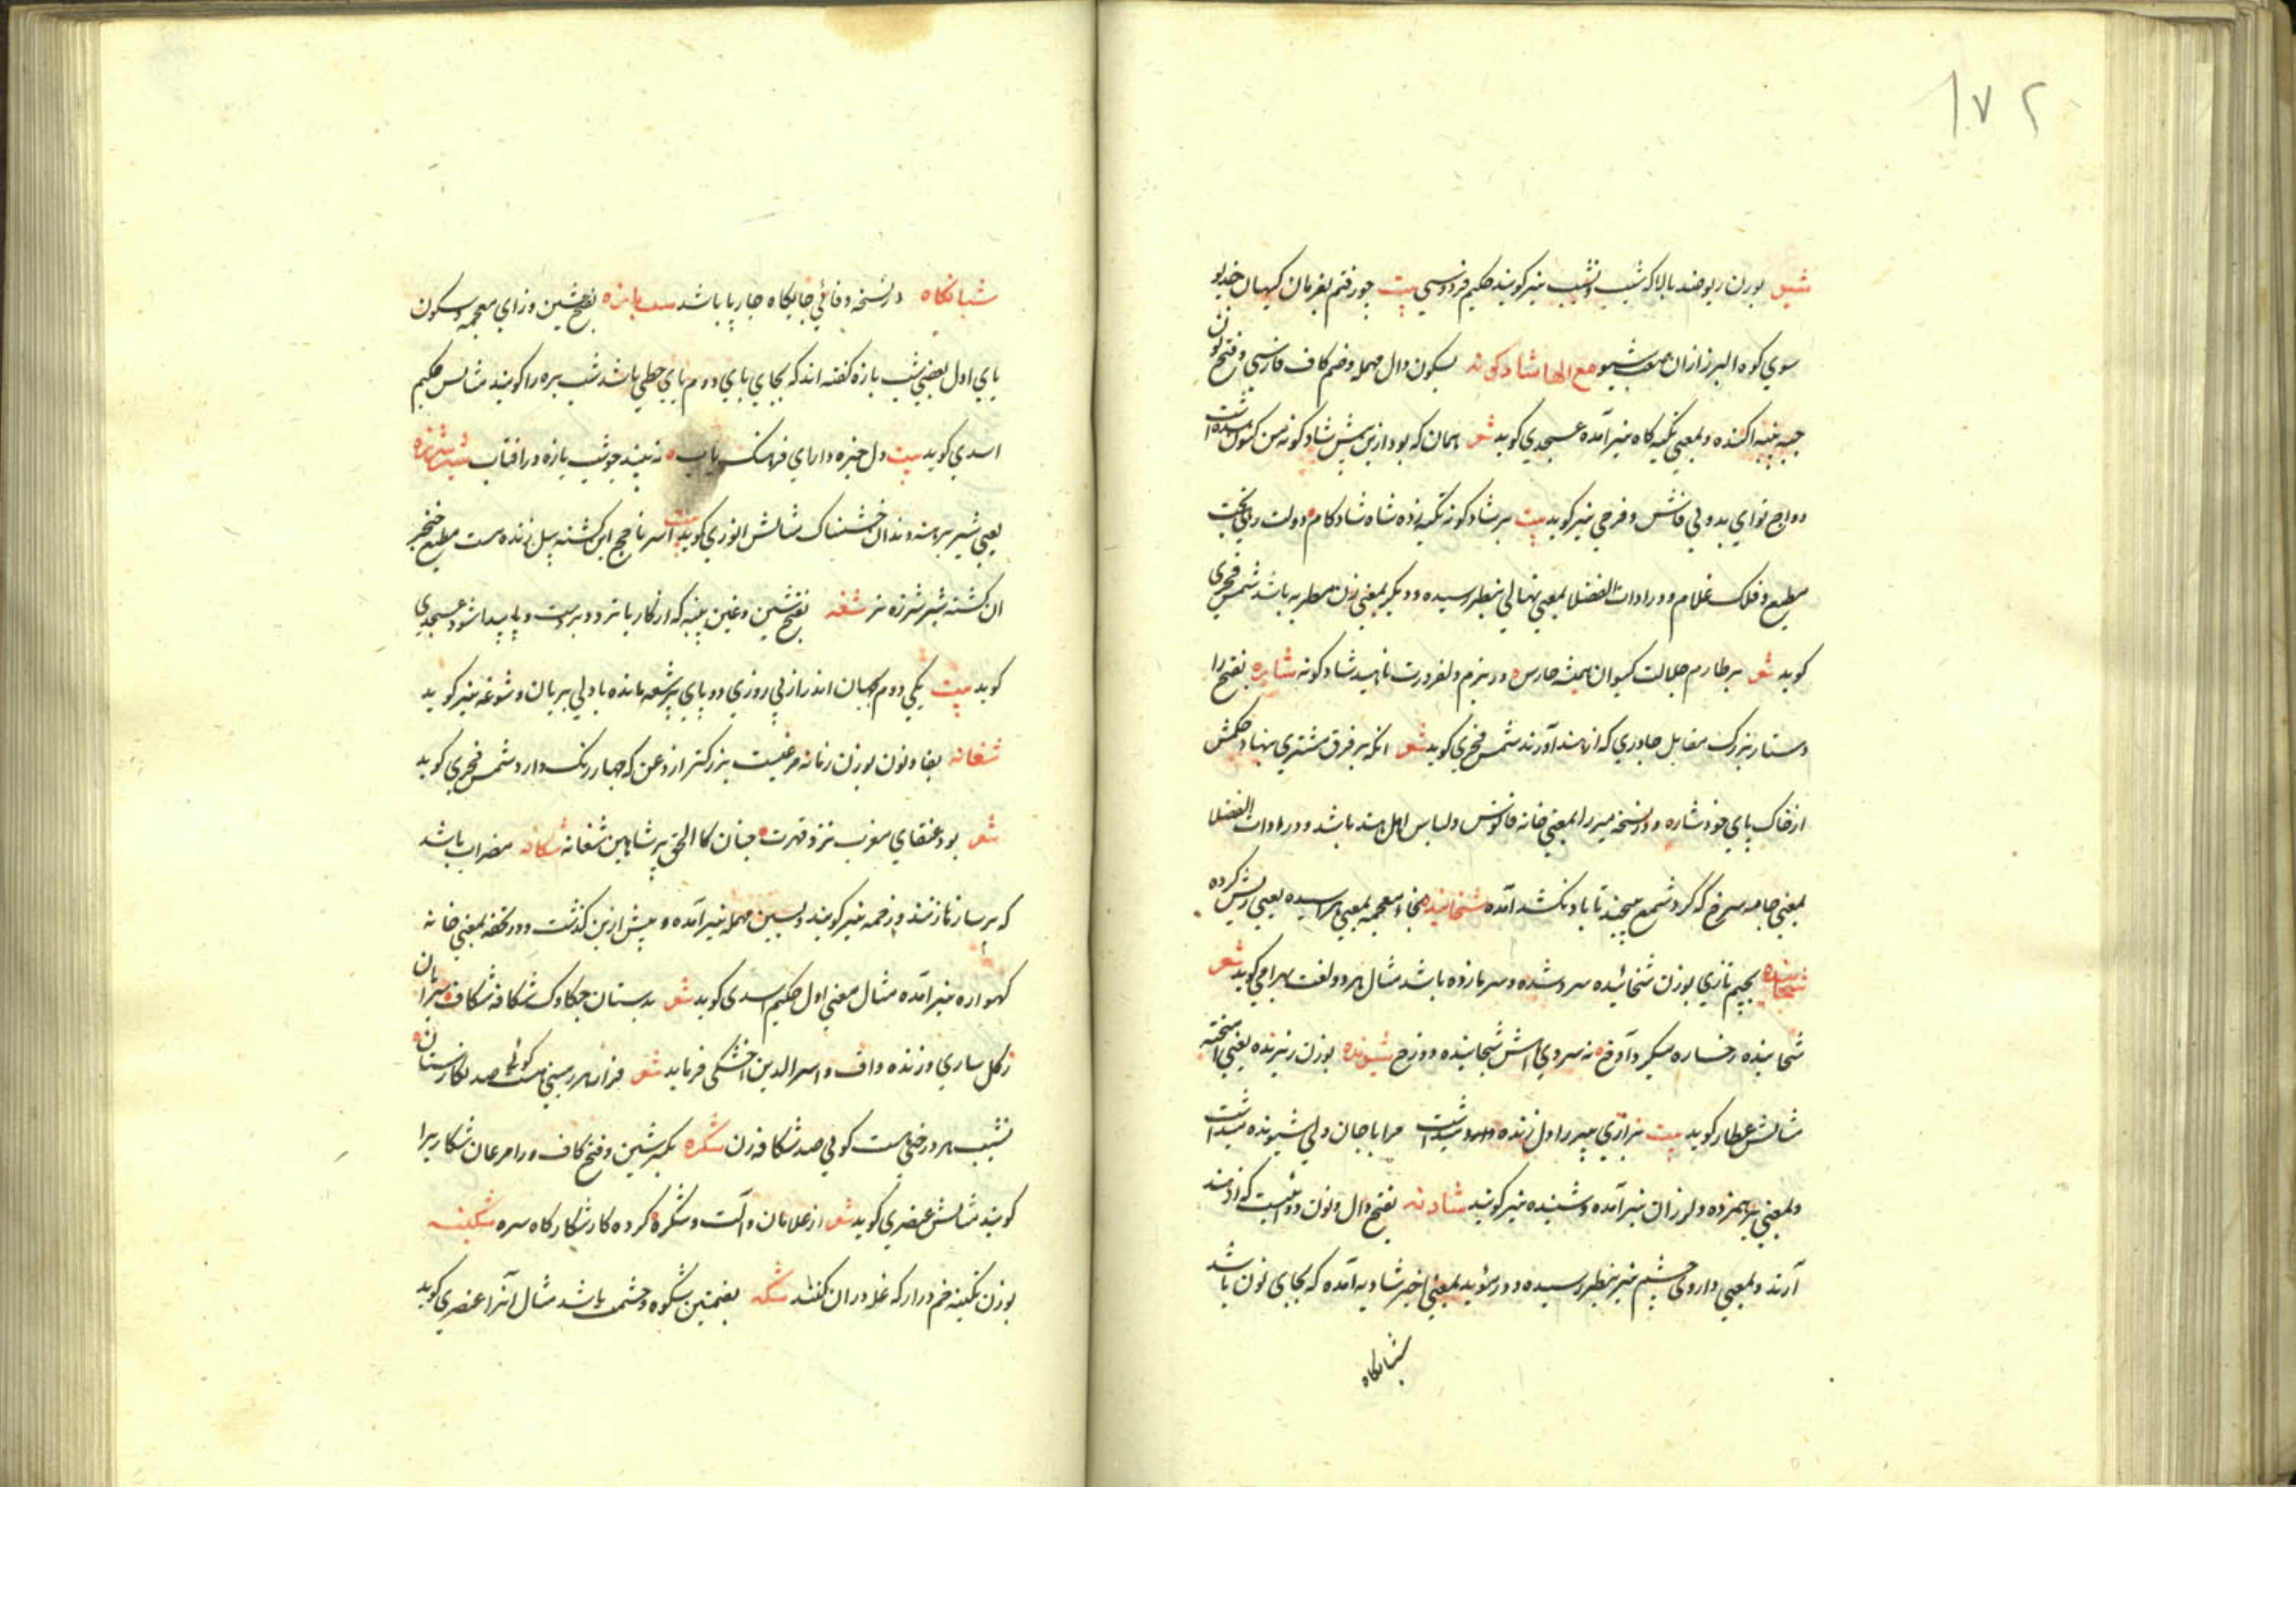 ۱۷۲
شیو بوزن ریو ضد بالا که شیب و نشیب نیز کویند حکیم فردوسی بیت چو رفتم بفرمان کیهان خدیو
سوی کوه البرز ازان شیو مع الها شادکونه بسکون دال مهمله و ضم کاف فارسی و فتح نون
جبه پنبه اکنده و بمعنی تکیه کاه نیز آمده عسجدی کوید شعر همان که بود ازین پیش شادکونه من
دواج نوای بدو بی فانش و فرجی نیز کوید بیت بر شادکونه تکیه زده شاه شادکام دولت رهی بخت
مطیع و فلک غلام و در ادات الفضلا بمعنی نهالی بنظر رسیده و دیکر بمعنی زن مطربه باشد شمس فخری
کوید شعر بر طارم جلالت کیوان همیشه حارس در بزم دلفروزت ناهید شادکونه شاره بفتح را
دستار بزرک مقابل چادری که از هند آورند شمس فخری کوید شعر انکه بر فرق مشتری بنهاد حکمش
از خاک پای خود شاره و در نسخه میرزا بمعنی خانه فانوس و لباس اهل هند باشد و در ادات الفضلا
بمعنی جامه سرخ که کرد شمع پیچند تا باد نکشد آمده شخائیده بخاء معجمه بمعنی هراسیده یعنی ریش کرده
شجائیده بجیم تازی بوزن شخائیده سرد شده و سرمازده باشد مثال هر دو لغت بهرامی کوید شعر
شخائیده رخساره میکرد آوخ نه سردی شجائیده دوزخ شیونده بوزن ریزنده یعنی امیخته
مثالش عطار کوید بیت
و بمعنی برهمزده و لرزان نیز آمده و شیبنده نیز کویند شادنه بفتح دال و نون دوائیست که از هند
آرند و بمعنی داروی چشم نیز بنظر رسیده و در مؤید بمعنی اخیر شادیه آمده که بجای نون یا باشد
شبانکاه
شبانکاه در نسخه وفائی جایکاه چارپا باشد شب یازه بفتح شین و زای معجمه و سکون
بای اول بعضی شب بازه کفته اند که بجای بای دوم یای حطی باشد شب پره را کویند مثالش حکیم
اسدی کوید بیت دل خیره دارای فرهنک یاب نه بیند چو شب یازه در افتاب شیر شرزه
یعنی شیر برهنه دندان خشمناک مثالش انوری کوید بیت آسر ناچخ این کشته پیل زنده مست مطیع خنجر
ان کشته شیر شرزه نر شغه بفتح شین و غین پینه که از کار یا تردد بر دست و پای پیدا شود عسجدی
کوید بیت یکی دوم بجهان اندر از پی روزی دو پای پر شغه مانده با دلی بریان و شوغه نیز کویند
شغانه بفا و نون بوزن زمانه مرغیست بزرکتر از زغن که چهار رنک دارد شمس فخری کوید
شعر بود عنقای مغرب نزد قهرت چنان کالحق پر شاهین شغانه شکافه مضراب باشد
که بر ساز نوازند و زخمه نیز کویند و بسین مهمله نیز آمده و پیش ازین کذشت و در تحفه بمعنی خانه
کهواره نیز آمده مثال معنی اول حکیم اسدی کوید شعر بدستان چکاوک شکافه شکاف سرایان
ز کل ساری و زنده واف و اسیر الدین اخسیکتی فرماید شعر صد نکارستان
نشیب هر درختی هست کوئی صد شکافه زن شکره بکسر شین و فتح کاف و را مرغان شکاریرا
کویند مثالش عنصری کوید شعر از غلامان و آلت و شکره کرده کار شکارکاه سره شکینه
بوزن نکینه خم دراز که غله دران کنند شکه بضمتین شکوه و حشمت باشد مثال آنرا عنصری کوید